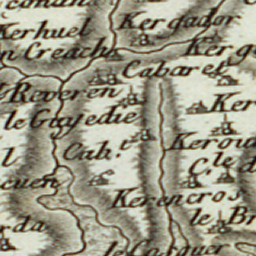 Kerhuel
Kergador
Creach
Kerg
Cabaret
Reveren
Ker
le Guyedie
Kerou
Cab.t
C.le d
cuen
Kerencros
le Br
le Cosquer